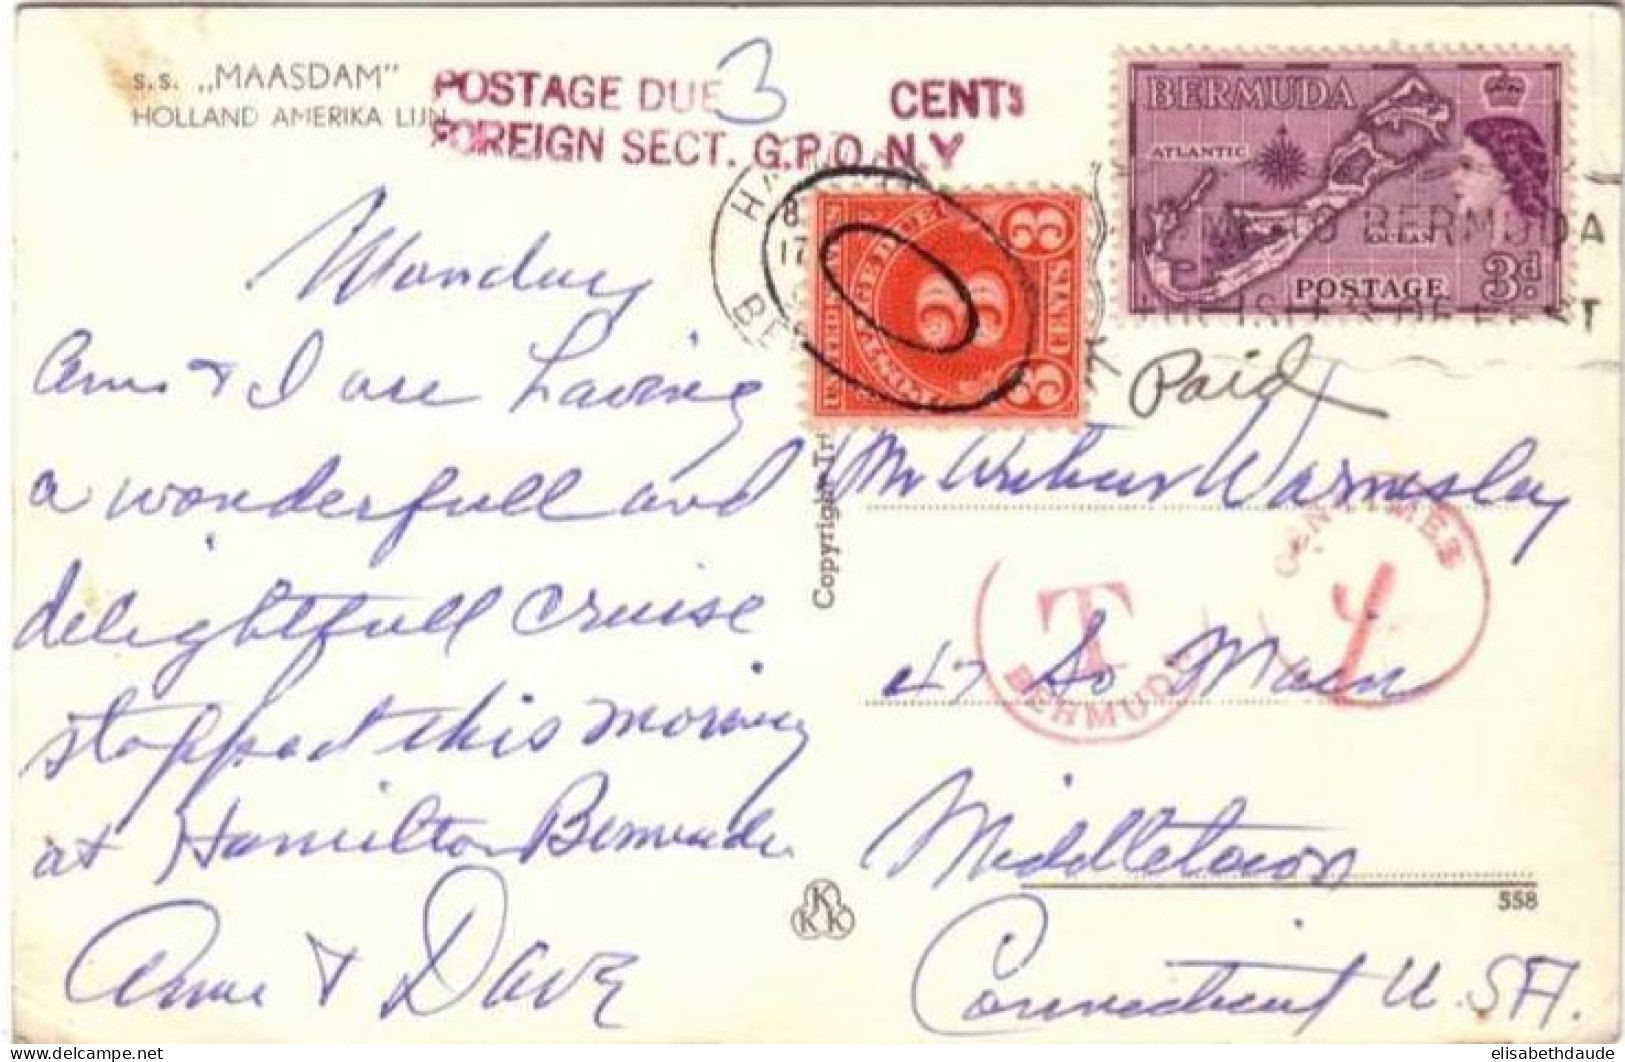 s.s. „MAASDAM"
HOLLAND AMERIKA LIJN
POSTAGE DUE 3 CENTS
FOREIGN SECT. G.P.O. N.Y
BERMUDA
ATLANTIC
OCEAN
POSTAGE 3d.
3 CENTS 3
Paid
Monday
Ann & I are having
a wonderfull and
delightfull cruise
stopped this morning
at Hamilton Bermuda
Ann & Dave
Copyright
Mr Arthur Warmsley
47 So Main
Middletown
Connecticut U.SA.
T
BERMUDA
CENTIMES
KKK
558
elisabethdaude